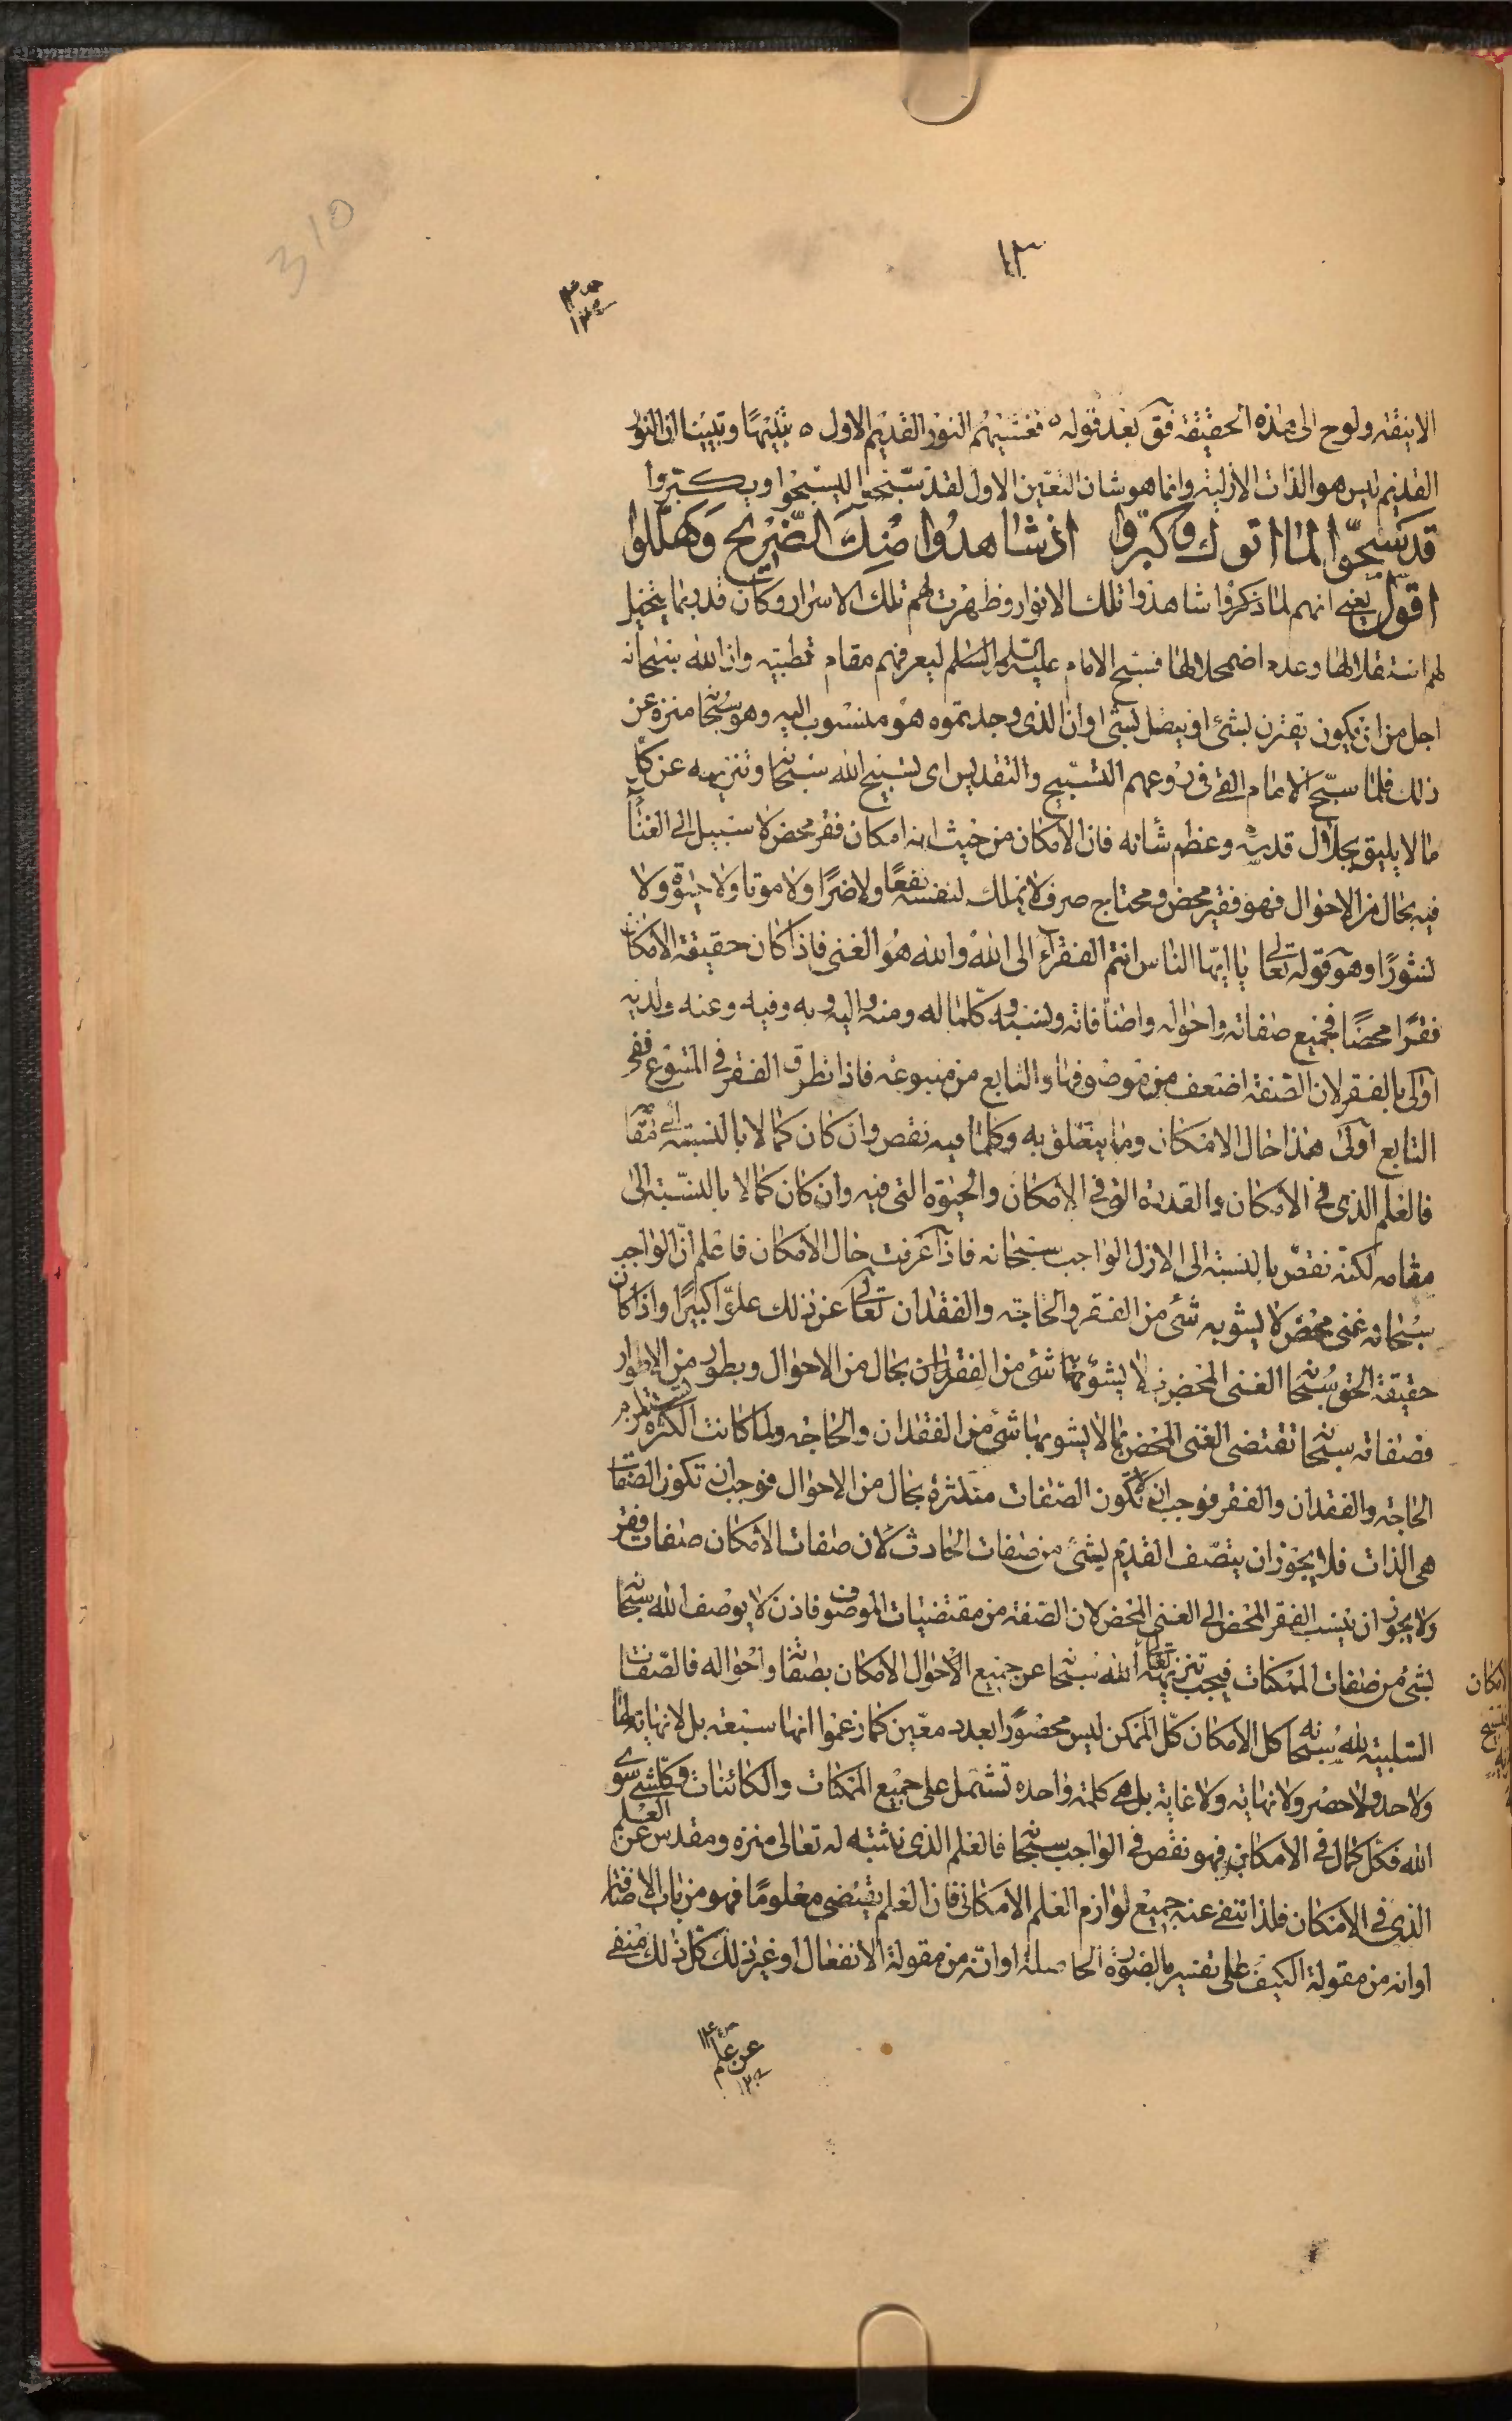 310
١٣
الانيقه ولوح الى هذه الحقيقة فق بعد قوله فغشيهم النور القديم الاول تنبيها وتبيينا ان النور
القديم ليس هو الذات الازلية وانما هو شان التعين الاول لقد سبحوا ليسبحوا ويكبروا
قد سبحوا لما اتوك وكبروا اذ شاهدوا منك الضريح وهللوا
اقول يعنى انهم لما ذكروا شاهدوا تلك الانوار وظهرت لهم تلك الاسرار وكان قد ربما يتخيل
لهم استقلالها وعدم اضمحلالها فسبح الامام عليه السلم ليعرفهم مقام قطبيته وان الله سبحانه
اجل من ان يكون يقترن بشئ او يتصل بشئ وان الذى وجدتموه هو منسوب اليه وهو سبحانه منزه عن
ذلك فلما سبح الامام القى فى روعهم التسبيح والتقديس اى تسبيح الله سبحانه وتنزيهه عن كل
ما لا يليق بجلال قدسه وعظم شأنه فان الامكان من حيث انه امكان فقر محض لا سبيل الى الغناء
فيه بحال من الاحوال فهو فقير محض ومحتاج صرف لا يملك لنفسه نفعا ولا ضرا ولا موتا ولا حيوة ولا
نشورا وهو قوله تعالى يا ايها الناس انتم الفقراء الى الله والله هو الغنى فاذا كان حقيقة الامكان
فقرا محضا فجميع صفاته واحواله واضافاته ونسبه وكلما له ومنه واليه وبه وفيه وعنه ولديه
اولى بالفقر لان الصفة اضعف من موصوفها والتابع من متبوعه فاذا تطرق الفقر فى المتبوع ففى
التابع اولى هذا حال الامكان وما يتعلق به وكلما فيه نقص وان كان كمالا بالنسبة الى مقامه
فالعلم الذى فى الامكان والقدرة التى فى الامكان والحيوة التى فيه وان كان كمالا بالنسبة الى
مقامه لكنه نقص بالنسبة الى الازل الواجب سبحانه فاذا عرفت حال الامكان فاعلم ان الواجب
سبحانه غنى محض لا يشوبه شئ من الفقر والحاجة والفقدان تعالى عن ذلك علوا كبيرا واذا كان
حقيقة الحق سبحانه الغنى المحض لا يشوبها شئ من الفقدان بحال من الاحوال وبطور من الاطوار
فصفاته سبحانه تقتضى الغنى المحض بما لا يشوبها شئ من الفقدان والحاجة ولما كانت الكثرة تستلزم
الحاجة والفقدان والفقر فوجب ان لا تكون الصفات متكثرة بحال من الاحوال فوجب ان تكون الصفات
هى الذات فلا يجوز ان يتصف القديم بشئ من صفات الحادث لان صفات الامكان صفات فقر
ولا يجوز ان ينسب الفقر المحض الى الغنى المحض لان الصفة من مقتضيات الموصوف فاذن لا يوصف الله سبحانه
بشئ من صفات الممكنات فيجب تنزيه الله سبحانه عن جميع الاحوال الامكان بصفاته واحواله فالصفات
السلبية لله سبحانه كل الامكان كل الممكن ليس محصورا بعدد معين كما زعموا انها سبعة بل لا نهاية لها
ولا حد ولا حصر ولا نهاية ولا غاية بل هى كلمة واحده تشتمل على جميع الممكنات والكائنات وكل شئ سوى
الله فكل كمال فى الامكان فهو نقص فى الواجب سبحانه فالعلم الذى نثبته له تعالى منزه ومقدس عن العلم
الذى فى الامكان فلذا تنفى عنه جميع لوازم العلم الامكانى فان العلم يقتضى معلوما فهو من باب الاضافة
او انه من مقولة الكيف على تفسيره بالصورة الحاصلة او انه من مقولة الانفعال او غير ذلك كل ذلك منفى
امكان